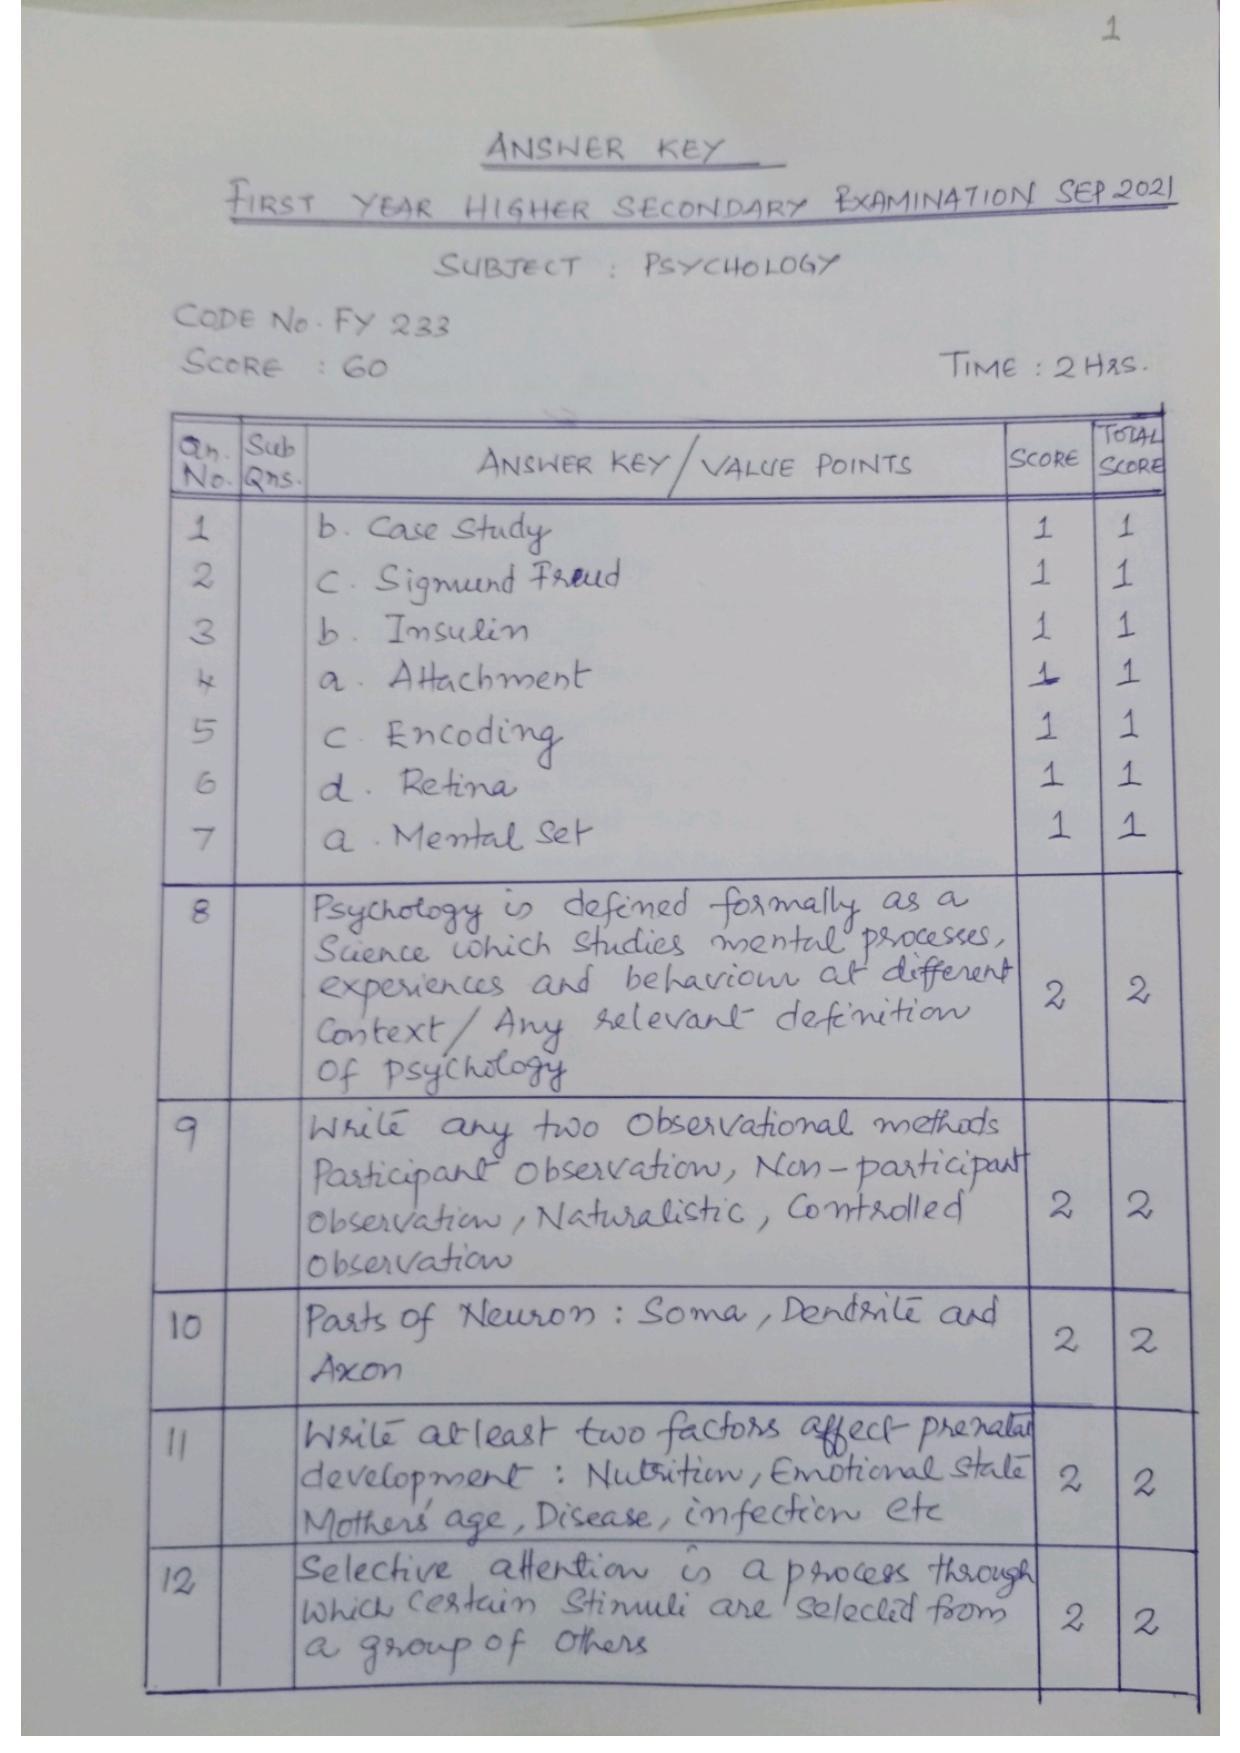 1
ANSWER KEY
FIRST YEAR HIGHER SECONDARY EXAMINATION SEP 2021
SUBJECT : PSYCHOLOGY
CODE No. FY 233
SCORE : 60 TIME : 2 HRS.
Qn. No. Sub Qns. ANSWER KEY / VALUE POINTS SCORE TOTAL SCORE
1 b. Case Study 1 1
2 c. Sigmund Freud 1 1
3 b. Insulin 1 1
4 a. Attachment 1 1
5 c. Encoding 1 1
6 d. Retina 1 1
7 a. Mental Set 1 1
8 Psychology is defined formally as a
Science which studies mental processes,
experiences and behaviour at different
Context / Any relevant definition
of psychology 2 2
9 Write any two Observational methods
Participant observation, Non-participant
observation, Naturalistic, Controlled
observation 2 2
10 Parts of Neuron : Soma, Dendrite and
Axon 2 2
11 Write at least two factors affect prenatal
development : Nutrition, Emotional state
Mothers' age, Disease, infection etc 2 2
12 Selective attention is a process through
which certain Stimuli are selected from
a group of others 2 2